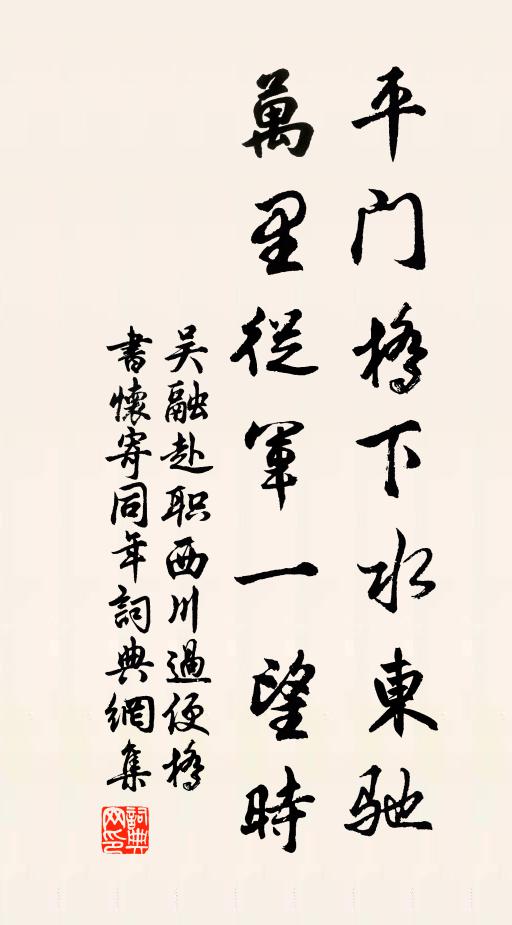 平门橋下水東馳
萬里從軍一望時
吴融赴职西川過便橋
書懷寄同年詞典網集
詞典
网印